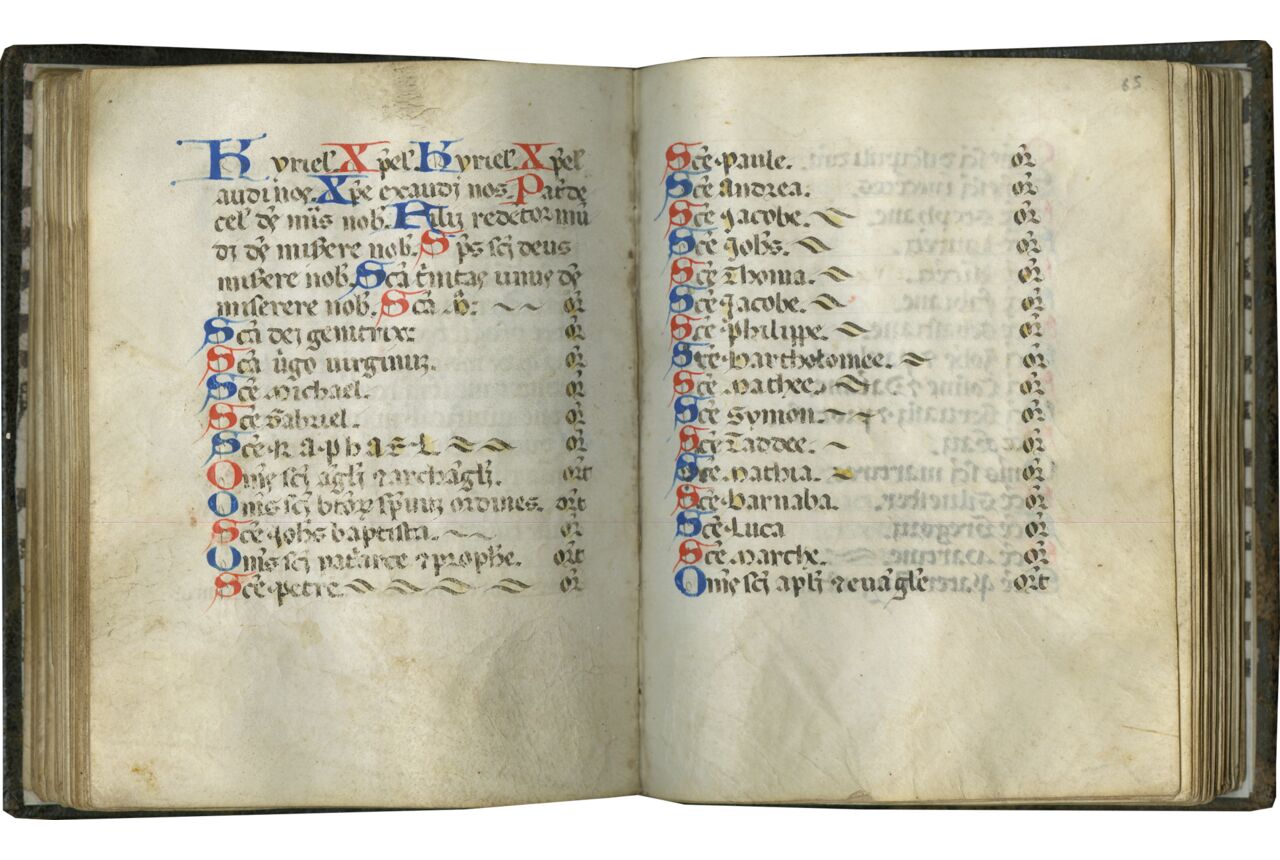 Kyriel̄ Xp̄el̄ Kyriel̄ Xp̄el̄
audi nos. Xp̄e exaudi nos. Pat̄ de
cel̄ dē mis̄ nob̄. Filij redētor mū
di dē misere nob̄. Sp̄s sc̄i deus
misere nob̄. Sc̄a t̄nitas unus dē
miserere nob̄. Sc̄a M̄: or̄
Sc̄a dei genitrix: or̄
Sc̄a v̄go virginū. or̄
Sc̄e Michael. or̄
Sc̄e Gabriel. or̄
Sc̄e·RAPHAEL or̄
Om̄s sc̄i āgl̄i ⁊ archāgl̄i. or̄t
Om̄s sc̄i btōꝝ sp̄uū ordines. or̄t
Sc̄e·Joh̄s baptista. or̄
Om̄s sc̄i pat̄arce ⁊ prophe. or̄t
Sc̄e·petre. or̄
65
Sc̄e·paule. or̄
Sc̄e Andrea. or̄
Sc̄e Jacobe. or̄
Sc̄e Joh̄s. or̄
Sc̄e Thoma. or̄
Sc̄e Jacobe. or̄
Sc̄e·philippe. or̄
Sc̄e·Bartholomee. or̄
Sc̄e·Mathee. or̄
Sc̄e Symon. or̄
Sc̄e Taddee. or̄
Sc̄e·Mathia. or̄
Sc̄e·Barnaba. or̄
Sc̄e·Luca or̄
Sc̄e·Marche. or̄
Om̄s sc̄i apl̄i ⁊ evāgl̄e. or̄t